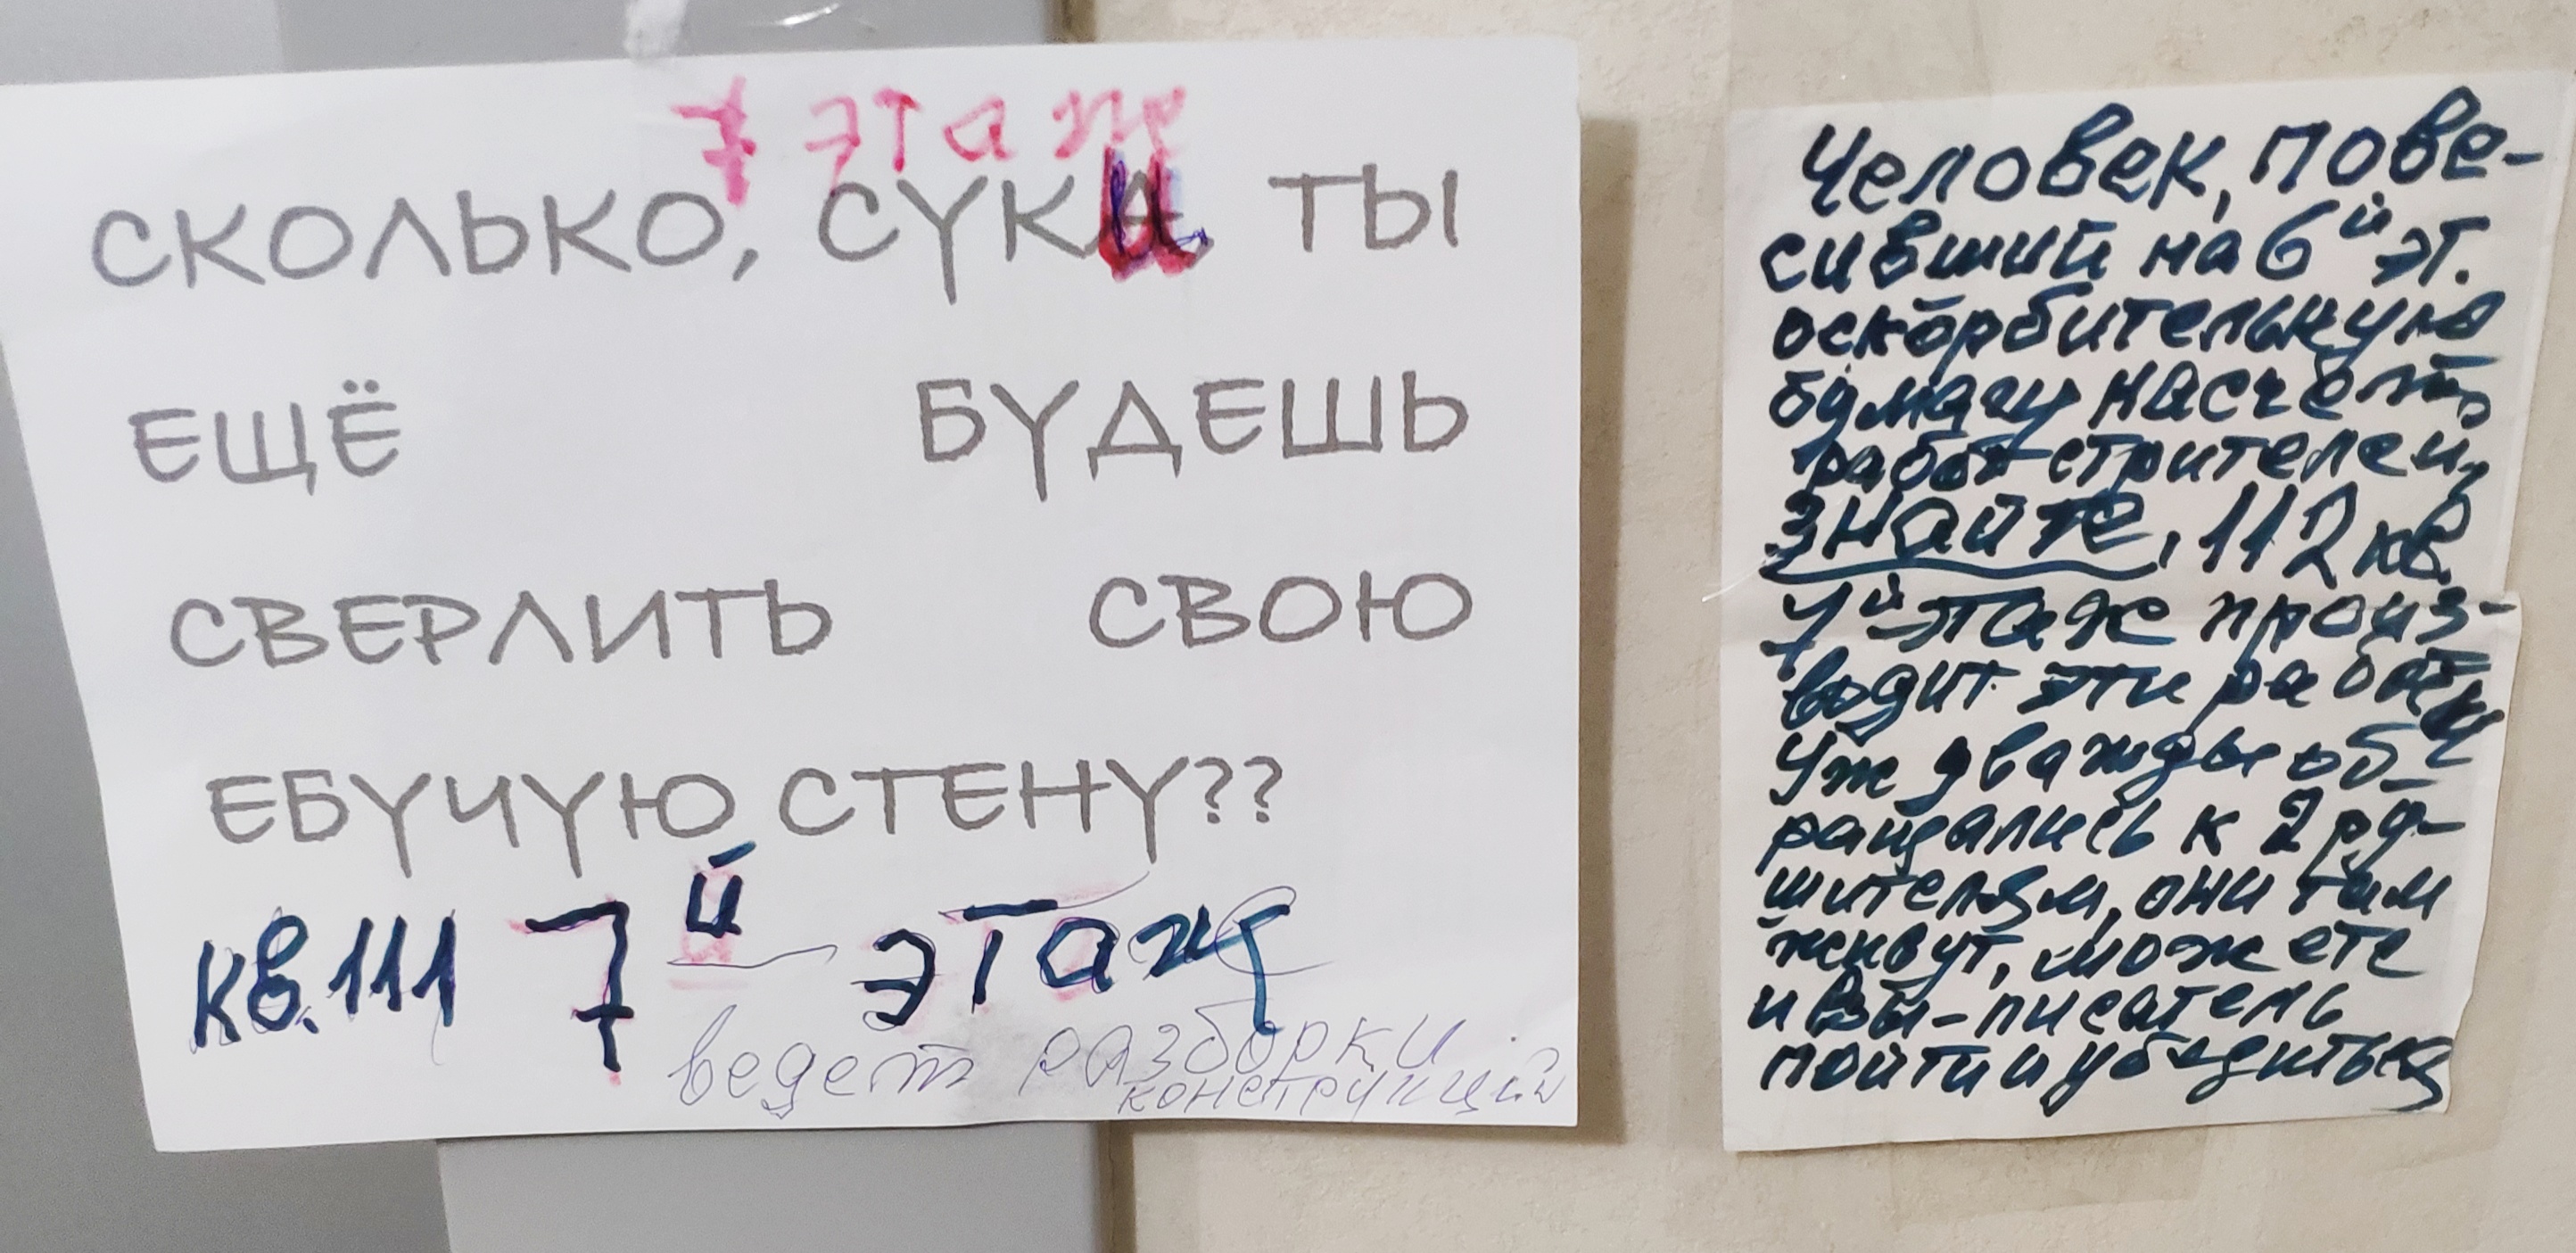 7 этаж
СКОЛЬКО, СУКИ ТЫ
ЕЩЁ БУДЕШЬ
СВЕРЛИТЬ СВОЮ
ЕБУЧУЮ СТЕНУ??
кв.111 7й этаж
ведет разборки
конструкций
Человек, пове-
сивший на 6й эт.
оскорбительную
бумагу насчёт
работ строителей,
знайте, 112 кв.
7й этаж произ-
водит эти работы
Уж дважды об-
ращались к 2 ру-
шителям, они там
живут, можете
и Вы-писатель
пойти и убедиться